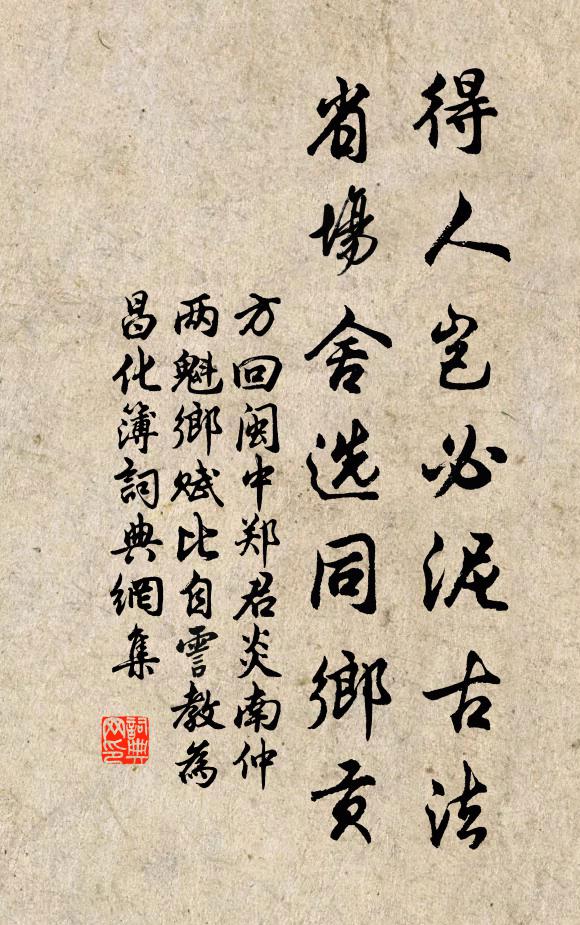 得人岂必泥古法
省场舍选同鄉贡
方回闽中郑君炎南仲
两魁鄉赋比自霅教為
昌化簿詞典網集
詞典
网印